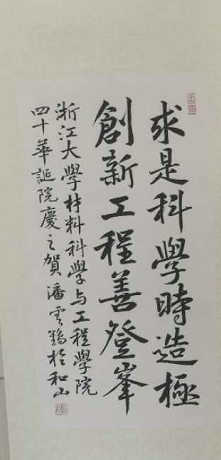 求是科學時造極
創新工程善登峯
浙江大學材料科學与工程學院
四十華誕院慶之賀潘雲鶴於和山